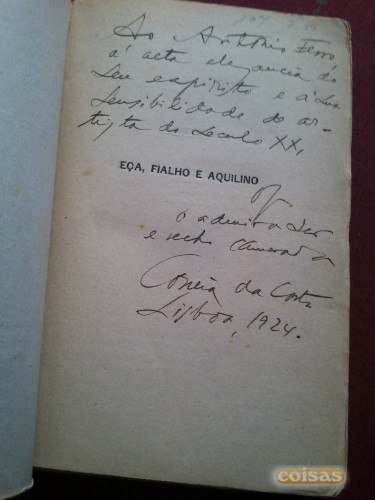 Ao António Ferro
à alta elegancia do
seu espirisito e á sua
sensibilidade de ar-
tista do seculo XX,
EÇA, FIALHO E AQUILINO
o admirador
e velho camarada
Correia da Costa
Lisboa, 1924.
coisas